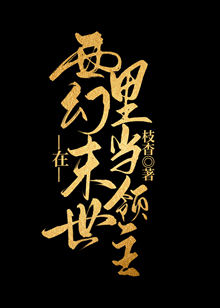 —在—
西幻末世
里当领主
枝杳◎著